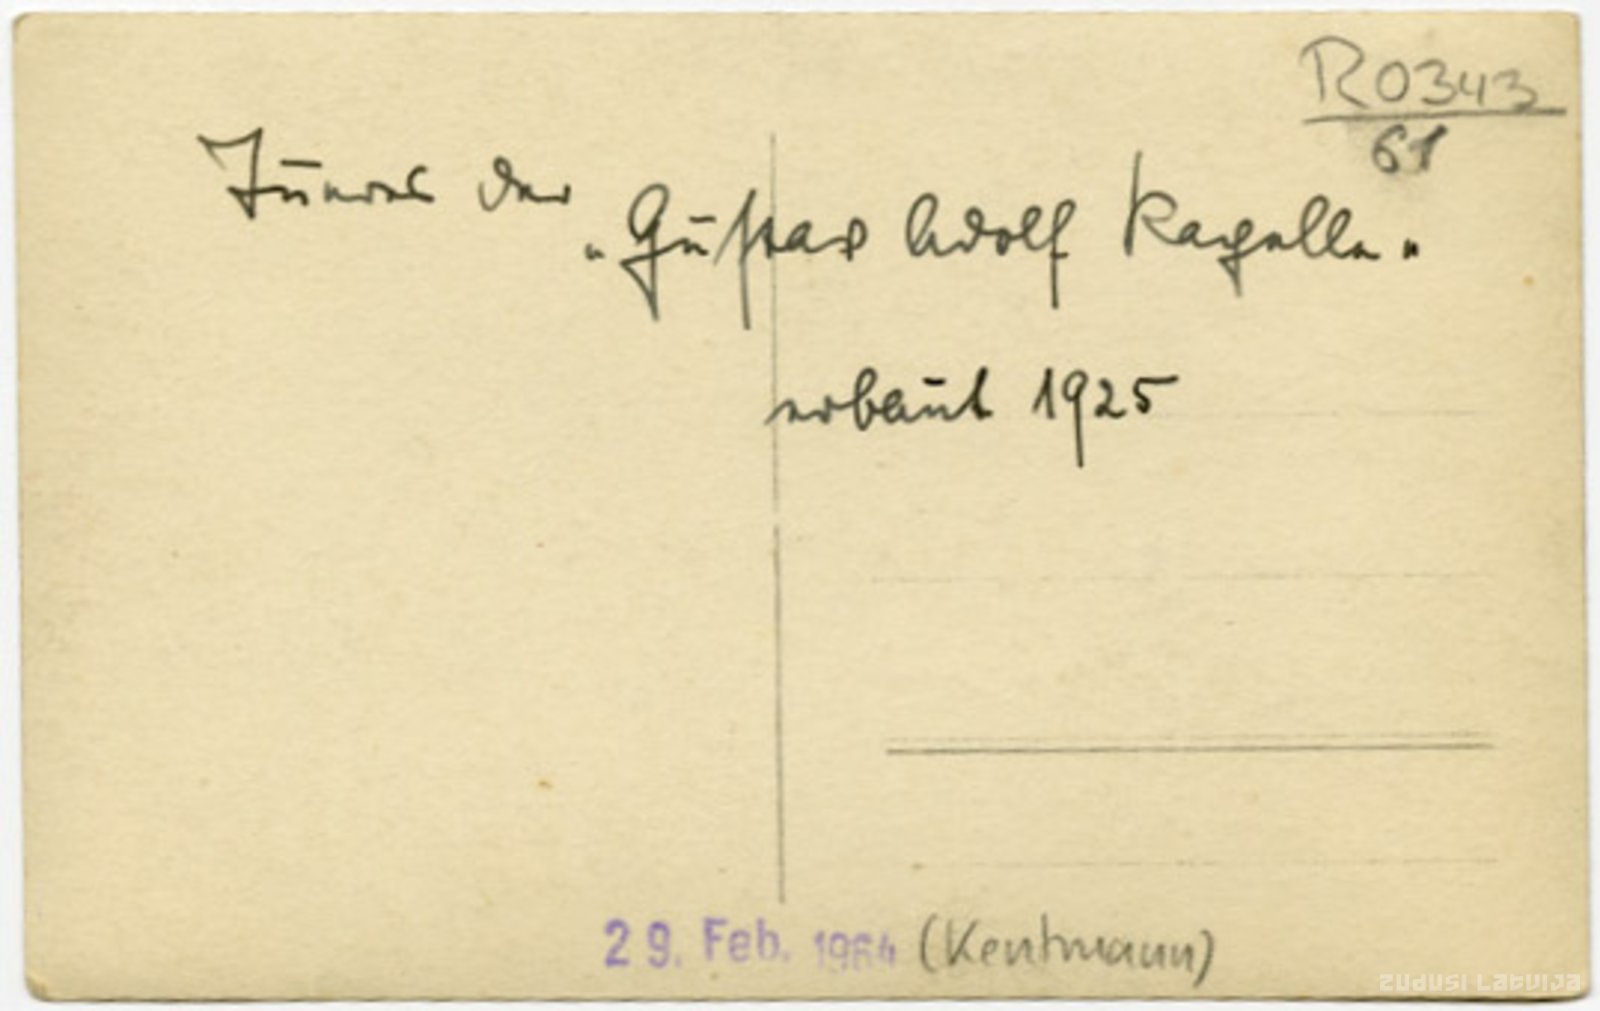 R0343
61
Inneres der
„Gustav Adolf Kapelle"
erbaut 1925
29. Feb. 1964 (Kentmann)
zudusi latvija